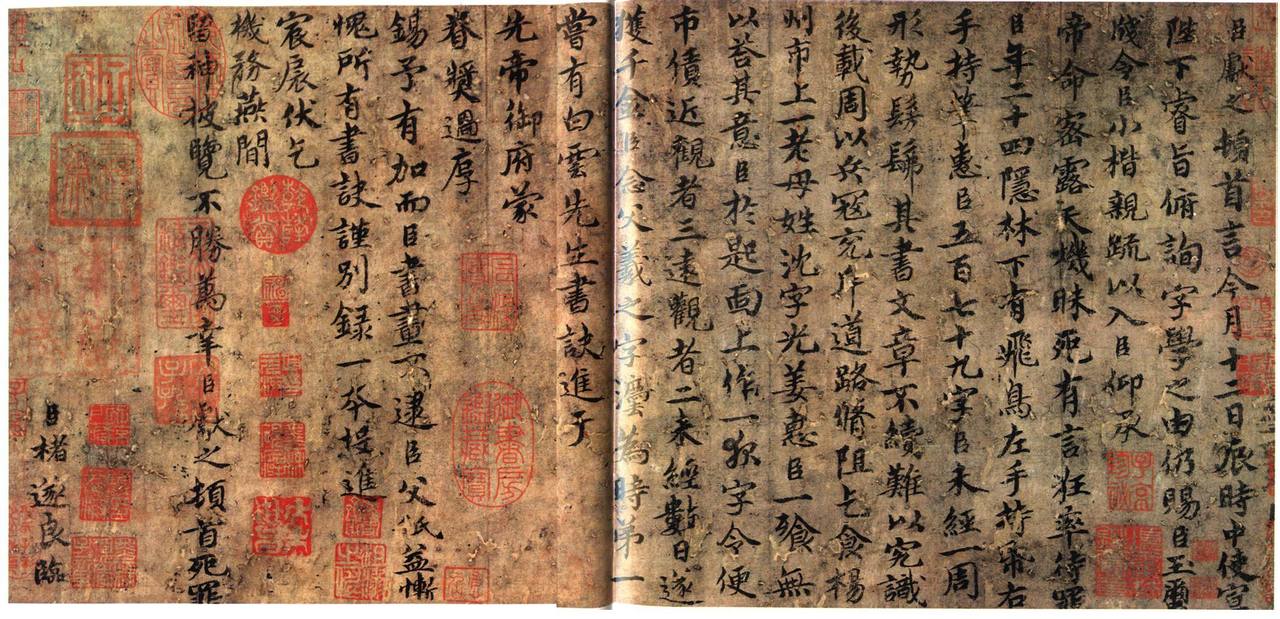 臣獻之頓首言今月十二日辰時中使宣
陛下睿旨俯詢字學之由仍賜臣玉璽
牋令臣小楷親疏以入臣仰承
帝命密露天機昧死有言狂率待罪
臣年二十四隱林下有飛鳥左手持帋右
手持筆惠臣五百七十九字臣未經一周
形勢髣髴其書文章不續難以究識
後載周以兵寇充斥道路脩阻乞食楊
州市上一老母姓沈字光姜惠臣一飱無
以荅其意臣於匙面上作一夜字令便
市債近觀者三遠觀者二未經數日遂
獲千金臣念父羲之字法為時第一
嘗有白雲先生書訣進于
先帝御府蒙
眷獎過厚
錫予有加而臣書畫不逮臣父祇益慚
愧所有書訣謹別録一本投進
宸扆伏乞
機務燕閒
畱神披覽不勝萬幸臣獻之頓首死罪
臣褚遂良臨